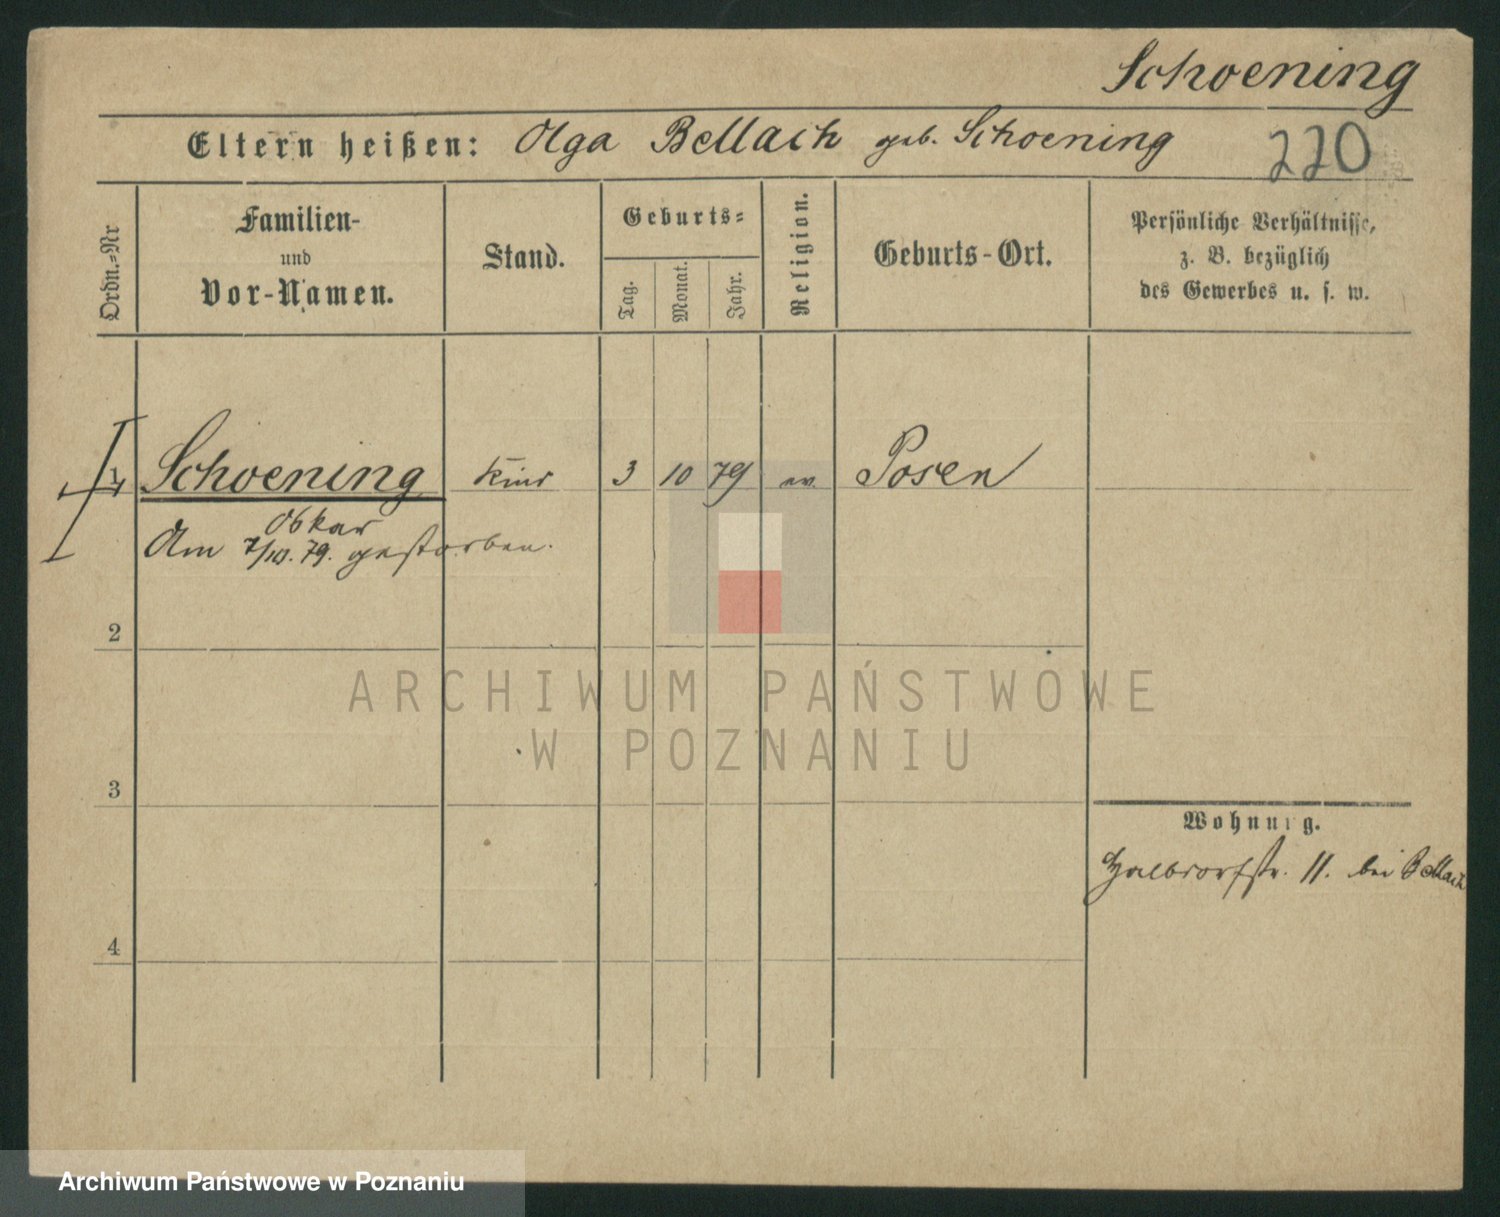 Schoening
Eltern heißen: Olga Bellach geb. Schoening
220
Ordn.=Nr
Familien-
und
Vor-Namen.
Stand.
Geburts=
Tag.
Monat.
Jahr.
Religion.
Geburts-Ort.
Persönliche Verhältnisse,
z. B. bezüglich
des Gewerbes u. s. w.
1 Schoening Kind 3 10 79 ev. Posen
Oskar
Am 7/10. 79. gestorben.
2
3
4
Wohnung.
Halbdorfstr. 11. bei Bellach
ARCHIWUM PAŃSTWOWE
W POZNANIU
Archiwum Państwowe w Poznaniu